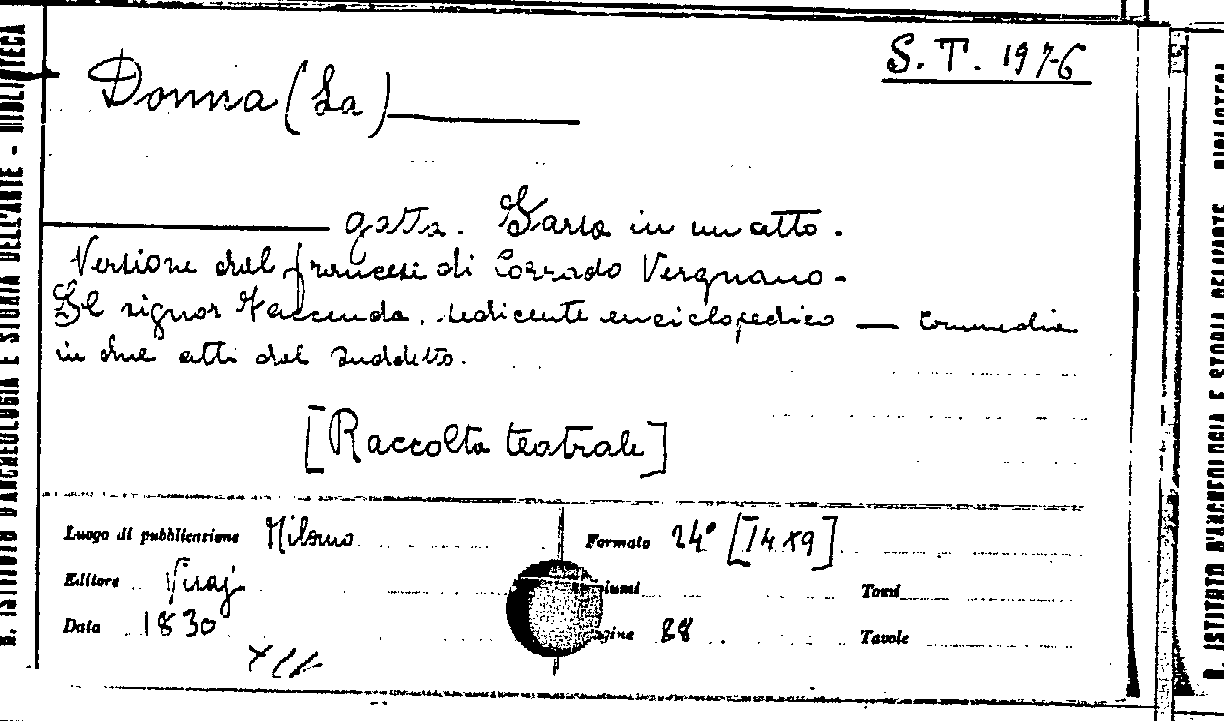 S. T. 197-6
Donna (La)
gatta. Farsa in un atto.
Versione dal francese di Corrado Vergnano-
Il signor Faccenda, sedicente enciclopedico — Commedia
in due atti del suddetto.
[Raccolta teatrale]
Luogo di pubblicazione Milano
Formato 24° [14x9]
Editore Visaj
Volumi
Tomi
Data 1830
Pagine 88
Tavole
R. ISTITUTO D'ARCHEOLOGIA E STORIA DELL'ARTE - BIBLIOTECA
R. ISTITUTO D'ARCHEOLOGIA E STORIA DELL'ARTE - BIBLIOTECA